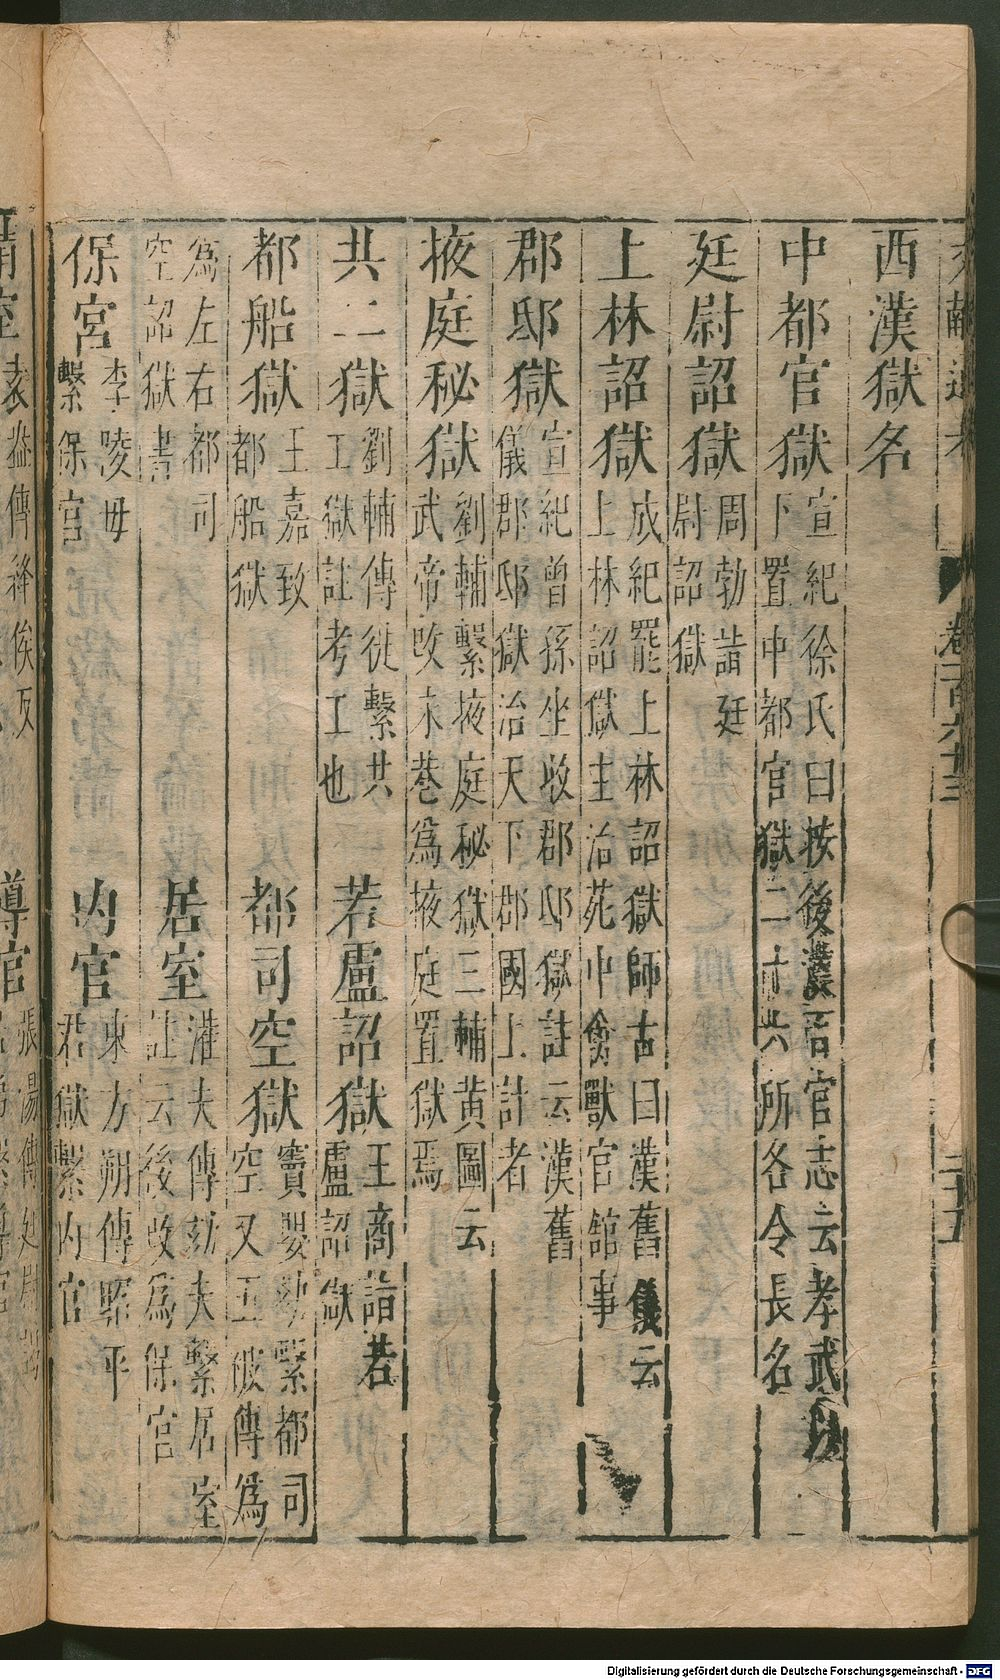 文獻通考 卷一百六十三 二十五
西漢獄名
中都官獄 宣紀徐氏曰按後漢百官志云孝武以
下置中都官獄二十六所各令長名
廷尉詔獄 周勃詣廷
尉詔獄
上林詔獄 成紀罷上林詔獄師古曰漢舊儀云
上林詔獄主治苑中禽獸官館事
郡邸獄 宣紀曾孫坐收郡邸獄註云漢舊
儀郡邸獄治天下郡國上計者
掖庭秘獄 劉輔繫掖庭秘獄三輔黃圖云
武帝改永巷爲掖庭置獄焉
共工獄 劉輔傳徙繫共
工獄註考工也
若盧詔獄 王商詣若
盧詔獄
都船獄 王嘉致
都船獄
都司空獄 竇嬰劾繫都司
空又五被傳爲
爲左右都司
空詔獄書
居室 灌夫傳劾夫繫居室
註云後改爲保宮
保宮 李陵母
繫保宮
內官 東方朔傳昭平
君獄繫內官
室 袁盎傳絳侯反
導官 張湯傳
Digitalisierung gefördert durch die Deutsche Forschungsgemeinschaft - DFG